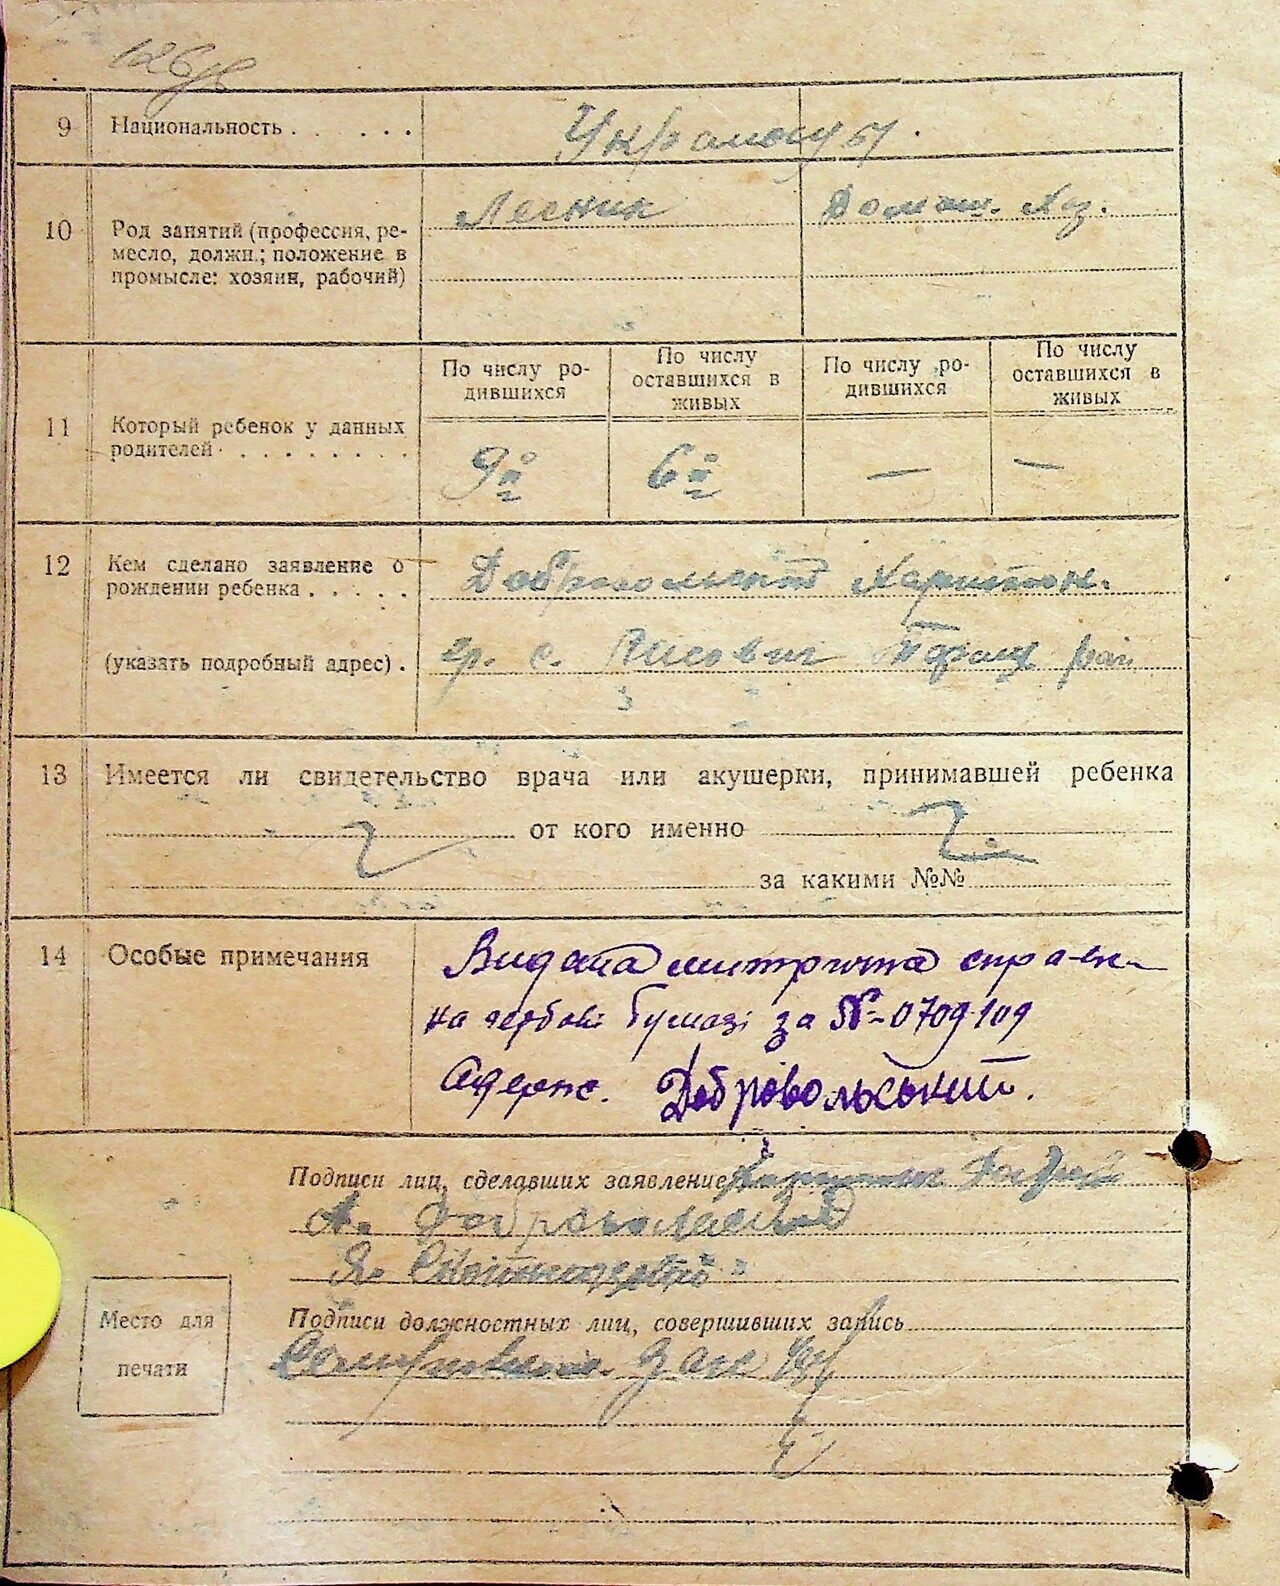 9 Национальность . . . . . . Украинцы.
10 Род занятий (профессия, ре-
месло, должн.; положение в
промысле: хозяин, рабочий)
Лесник
Домаш. Хаз.
11 Который ребенок у данных
родителей . . . . . . . .
По числу ро-
дившихся
По числу
оставшихся в
живых
По числу ро-
дившихся
По числу
оставшихся в
живых
9й 6й — —
12 Кем сделано заявление о
рождении ребенка . . . . .
Добровольский Харитон.
(указать подробный адрес) .
гр. с. Лисович Таращ рай
13 Имеется ли свидетельство врача или акушерки, принимавшей ребенка
от кого именно
за какими №№
14 Особые примечания
Видана метрична справ-
ка гербові бумазі за №-0709109
Адержс. Добровольський.
Подписи лиц, сделавших заявление Харитон
А. Добровольский
Я.
Место для
печати
Подписи должностных лиц, совершивших запись